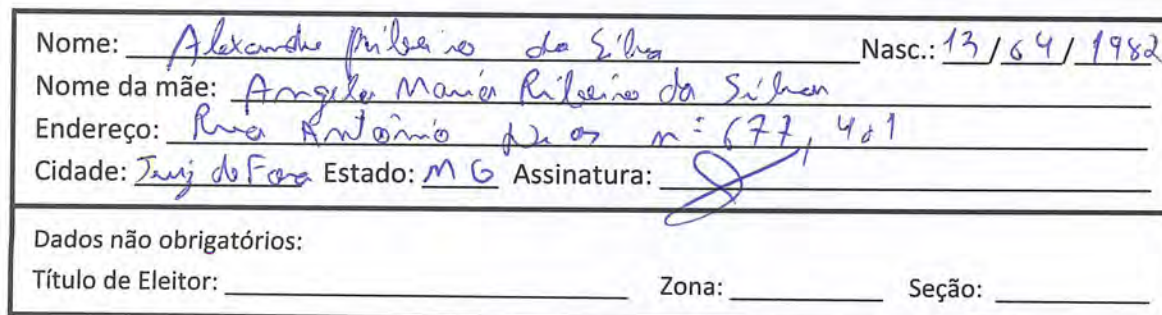 Nome: Alexandre Ribeiro da Silva Nasc.: 13/04/1982
Nome da mãe: Angela Maria Ribeiro da Silva
Endereço: Rua Antônio Dias nº 677, 401
Cidade: Juiz de Fora Estado: MG Assinatura:
Dados não obrigatórios:
Título de Eleitor: Zona: Seção: